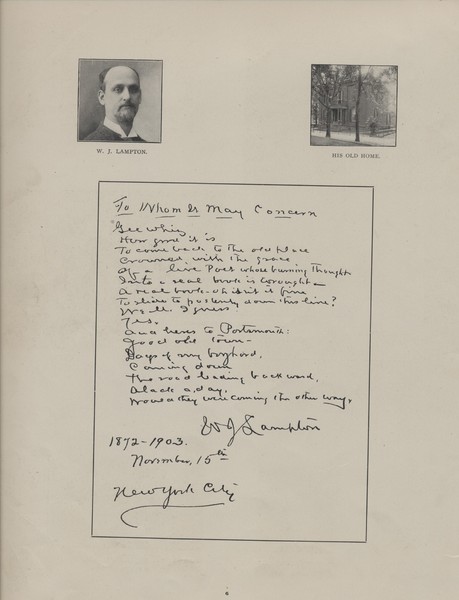 W. J. LAMPTON.
HIS OLD HOME.
To Whom It May Concern
Gee whiz,
How fine it is
To come back to the old place
Crowned with the grace
Of a live Poet whose burning thought
Into a real book is wrought—
A real book—oh isn't it fine
To slide to posterity down this line?
Well, I guess!
Yes,
And here's to Portsmouth:
Good old town—
Days of my boyhood,
Coming down
The road leading backward,
Alack a day,
Would they were coming the other way.
W J Lampton
1872-1903.
November, 15th
New York City